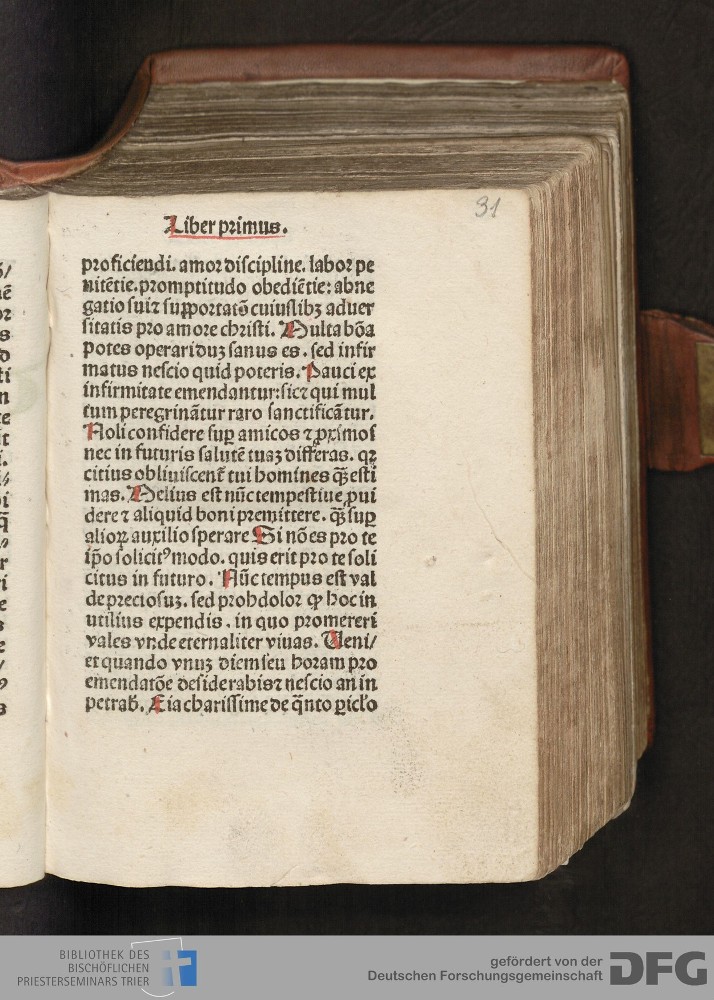 31
Liber primus.
proficiendi. amor discipline. labor pe
nitētie. promptitudo obediētie: abne
gatio suiꝫ supportatō cuiuslibꝫ aduer
sitatis pro amore christi. Multa bōa
potes operari duꝫ sanus es. sed infir
matus nescio quid poteris. Pauci ex
infirmitate emendantur: sicꝫ qui mul
tum peregrināturraro sanctificātur.
Noli confidere suꝑ amicos ⁊ ꝓximos
nec in futuris salutē tuaꝫ differas. qꝛ
citius obliuiscent̄ tui homines qꝫ esti
mas. Melius est nūc tempestiue ꝓui
dere ⁊ aliquid boni premittere. qꝫ suꝑ
alioꝝ auxilio sperare Si nō es pro te
ip̄o solicitꝰ modo. quis erit pro te soli
citus in futuro. Nūc tempus est val
de preciosuꝫ. sed prohdolor ꝙ hoc in
utilius expendis. in quo promereri
vales vnde eternaliter viuas. Veni/
et quando vnuꝫ diem seu horam pro
emendatōe desiderabis⁊ nescio an in
petrab. Eia charissime de q̄nto ꝑiclo
BIBLIOTHEK DES
BISCHÖFLICHEN
PRIESTERSEMINARS TRIER
gefördert von der
Deutschen Forschungsgemeinschaft
DFG